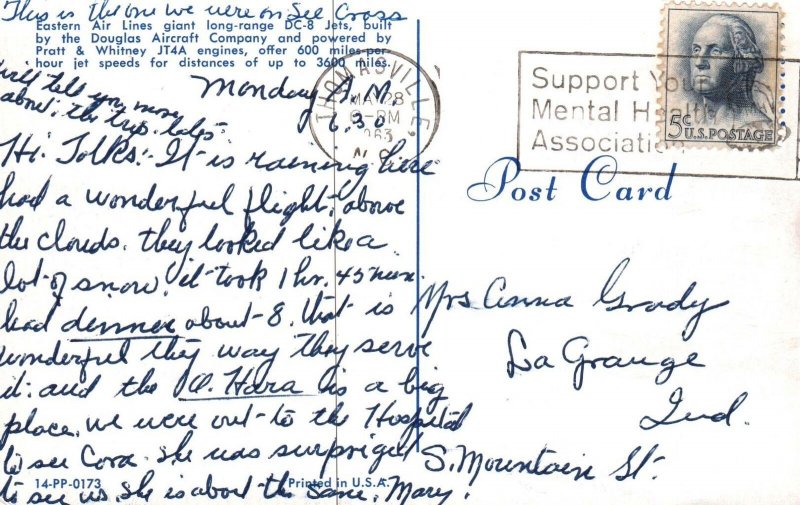 This is the one we were on See Cross
Eastern Air Lines giant long-range DC-8 Jets, built
by the Douglas Aircraft Company and powered by
Pratt & Whitney JT4A engines, offer 600 miles-per-
hour jet speeds for distances of up to 3600 miles.
will tell you more
about the trip. later
Monday A.M.
6,30
Hi Folks: It is raining here
had a wonderful flight, above
the clouds. they looked like a
lot of snow. it took 1 hr. 45 min.
had dinner about 8. that is
wonderful they way they serve
it. and the O. Hara is a big
place. we were out to the Hospital
to see Cora. she was surprised
to see us. she is about the same. Mary.
14-PP-0173
Printed in U.S.A.
THOMASVILLE,
MAY 28
PM
1963
N.C.
Support Your
Mental Health
Association
5¢
U.S. POSTAGE
Post Card
Mrs Anna Grady
La Grange
Ind.
S. Mountain St.